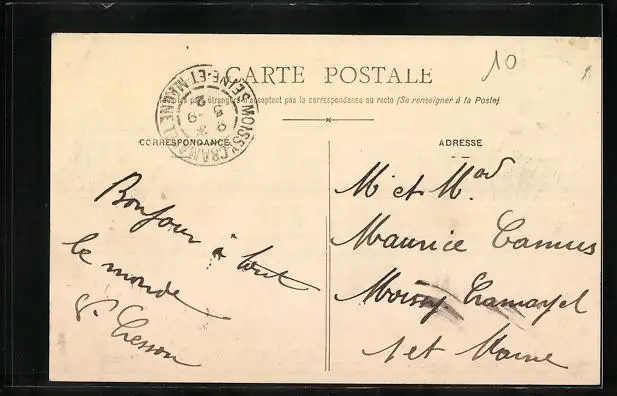 10
CARTE POSTALE
pays étrangers n'acceptent pas la correspondance au recto (Se renseigner à la Poste)
MOISSY-CRAMAYEL
SEINE-ET-MARNE
CORRESPONDANCE
ADRESSE
Bonjour à tout
le monde
M et Mad
Maurice Camus
Moissy Cramayel
S et Marne